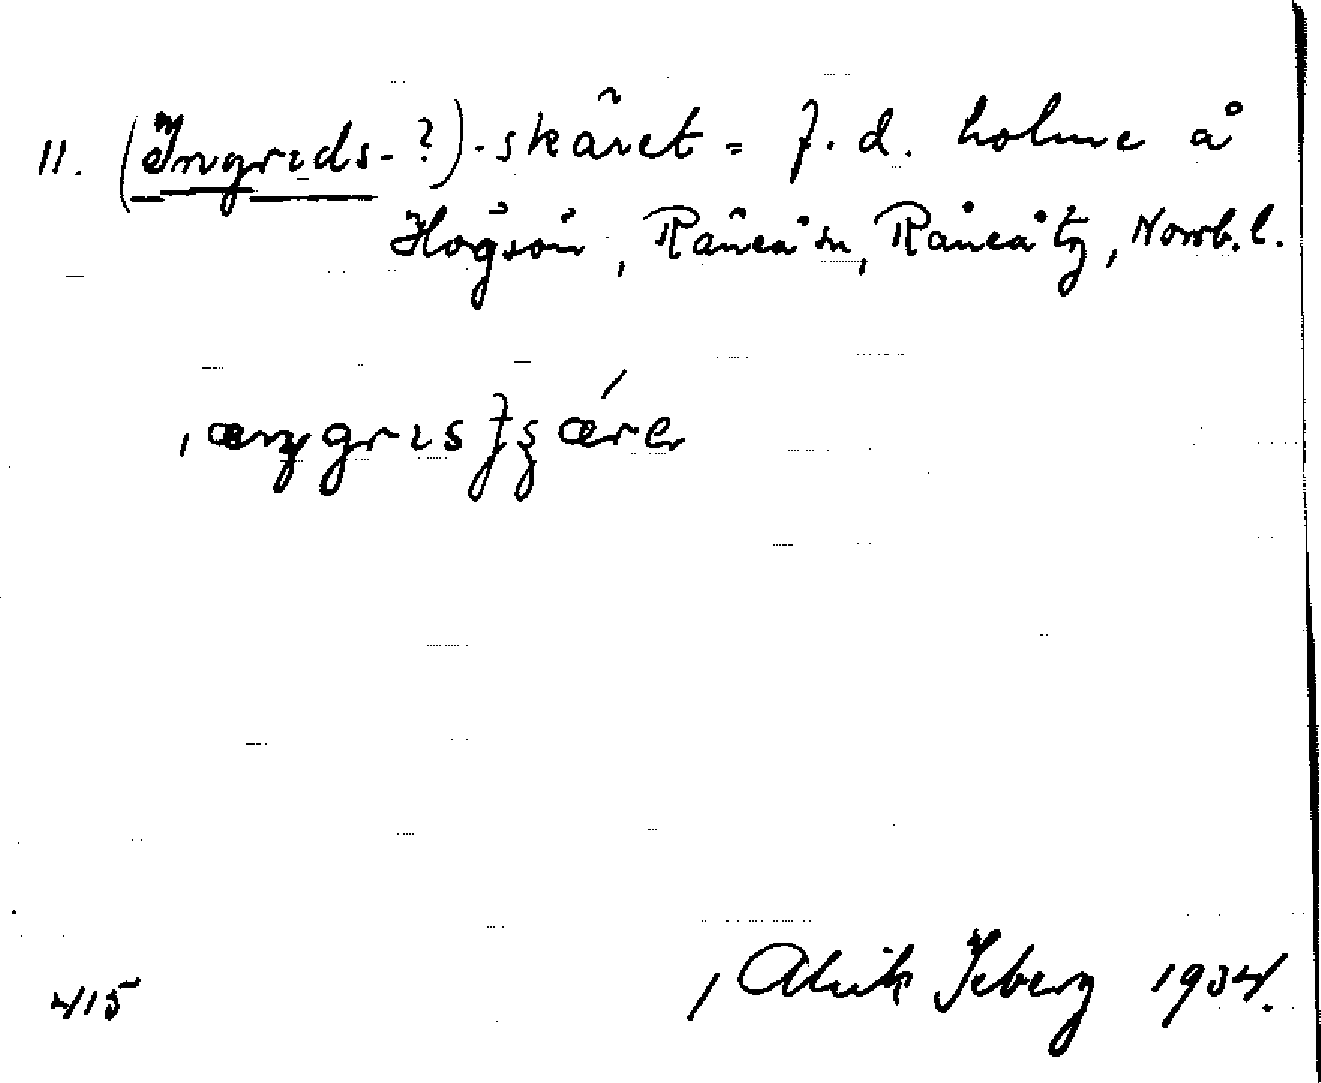 11. (Ingrids-?)-skäret = f. d. holme å
Högsön, Råneå sn, Råneå tg, Norrb. l.
415
Alrik Iberg 1934.